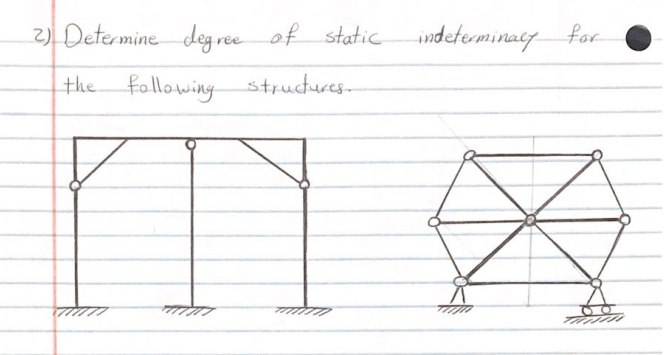 2) Determine degree of static indeterminacy for
the following structures.